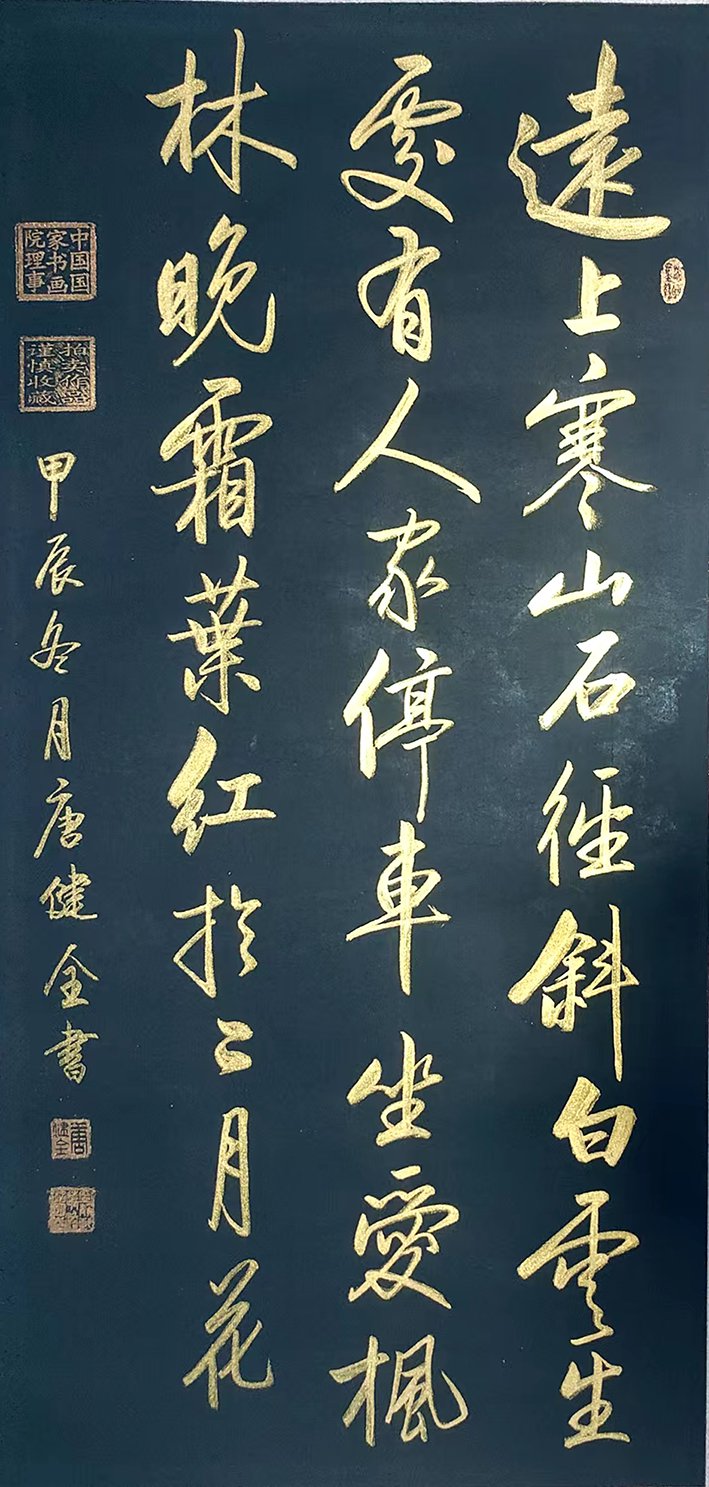 遠上寒山石徑斜白雲生
處有人家停車坐愛楓
林晚霜葉紅於二月花
甲辰冬月唐健全書
中国国
家书画
院理事
拍卖作品
谨慎收藏
唐
健全